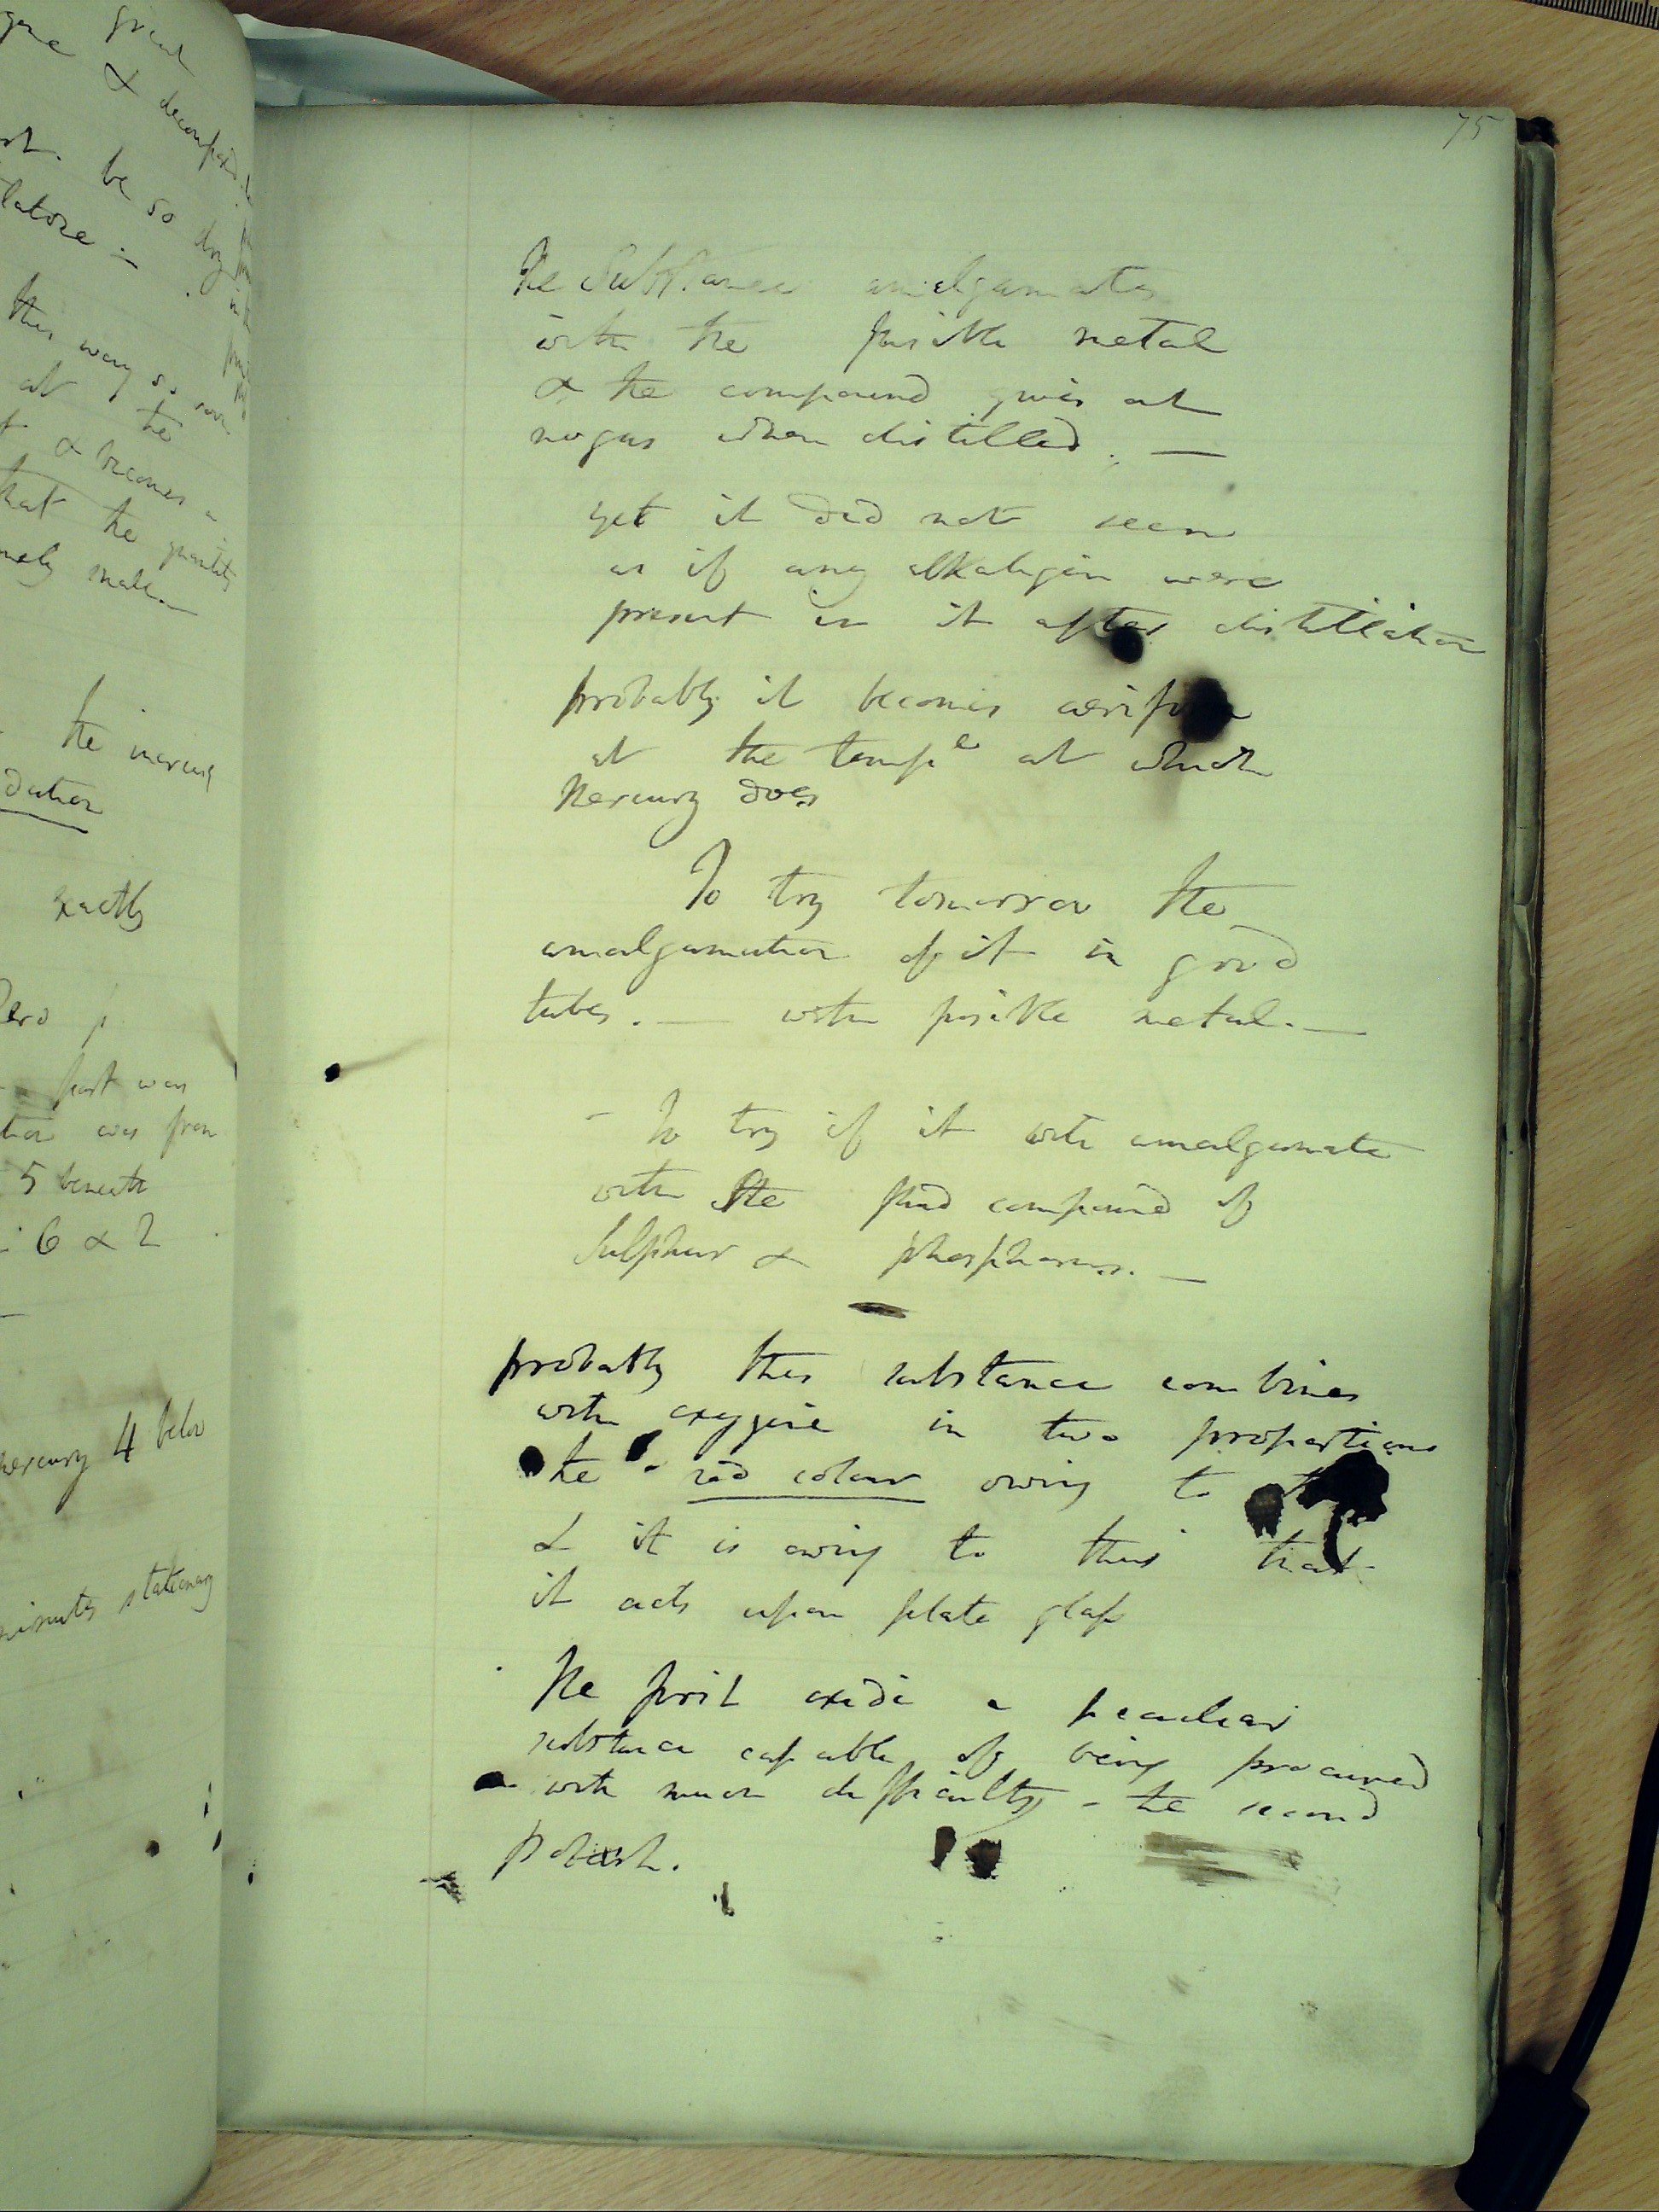 gne great
& decomposed
be so dry
this way so
at the
& becomes a
that the quantity
small._
the mercury
exactly
Zero
part was
was from
5 beneath
6 & 2
mercury 4 below
minutes stationary
75
The Substance amalgamates
with the fusible metal
& the compound gives out
no gas when distilled. —
yet it did not seem
as if any alkaligen were
present in it after distillation
probably it becomes aeriform
at the temp^e at which
Mercury does
To try tomorrow the
amalgamation of it in good
tubes. — with fusible metal. —
- To try if it will amalgamate
with the fluid compound of
Sulphur & phosphorus. —
probably this substance combines
with oxygene in two proportions
the - red colour owing to
& it is owing to this that
it acts upon plate glass
The first oxide a peculiar
substance capable of being procured
with much difficulty - the second
potash.